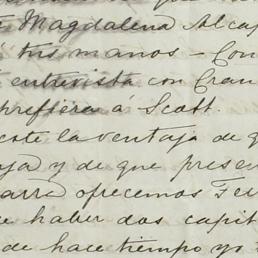 Magdalena Alcap
tus manos - Con
entrevista con Cran
prefiera á Scott.
este la ventaja de q
aja y de que presen
arra ofrecemos Fer
e haber dos capit
de hace tiempo yo t